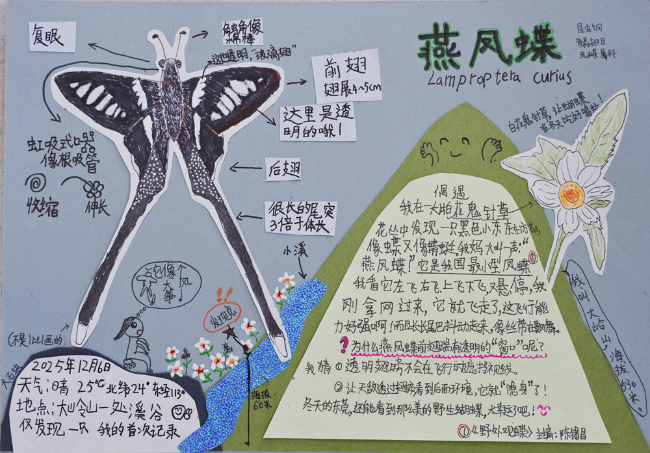 燕凤蝶
Lamproptera curius
昆虫纲
鳞翅目
凤蝶科
复眼
触角像
棒棒
这里透明,"玻璃翅"
前翅
翅展4~5cm
这里是透
明的哦!
虹吸式口器
像根吸管
收缩
伸长
后翅
很长的尾突
3倍于体长
小溪
白花鬼针草,让蝴蝶
在冬天吃的蜜粮!
偶遇
我在一大脑花鬼针草
花丛中发现一只黑色小东东
像蝶又像蜻蜓,我妈大叫一声:"
燕凤蝶"它是我国最小型凤蝶①
我看它左飞右飞上飞下飞,又悬停,我
刚拿网过来,它就飞走了,这飞行能
力好强啊!而且长长尾巴抖动走来,像丝带
?为什么燕凤蝶前翅端有透明的"窗口"呢?
我猜:①透明翅膀不会在飞行时
②让天敌透过翅膀看到后面环境,它就"隐身"了!
冬天的东莞,还能看到那么美的野生蝴蝶,太幸运了吧!
①《野外观蝶》主编:陈锡昌
我叫大岭山,海拔530米。
它像个
大风
筝!
发现点
海拔
60米
(不是1比1画的)
大石块
2025年12月6日
天气:晴 25℃ 北纬24° 东经113°
地点:大岭山一处溪谷
仅发现一只 我的首次记录